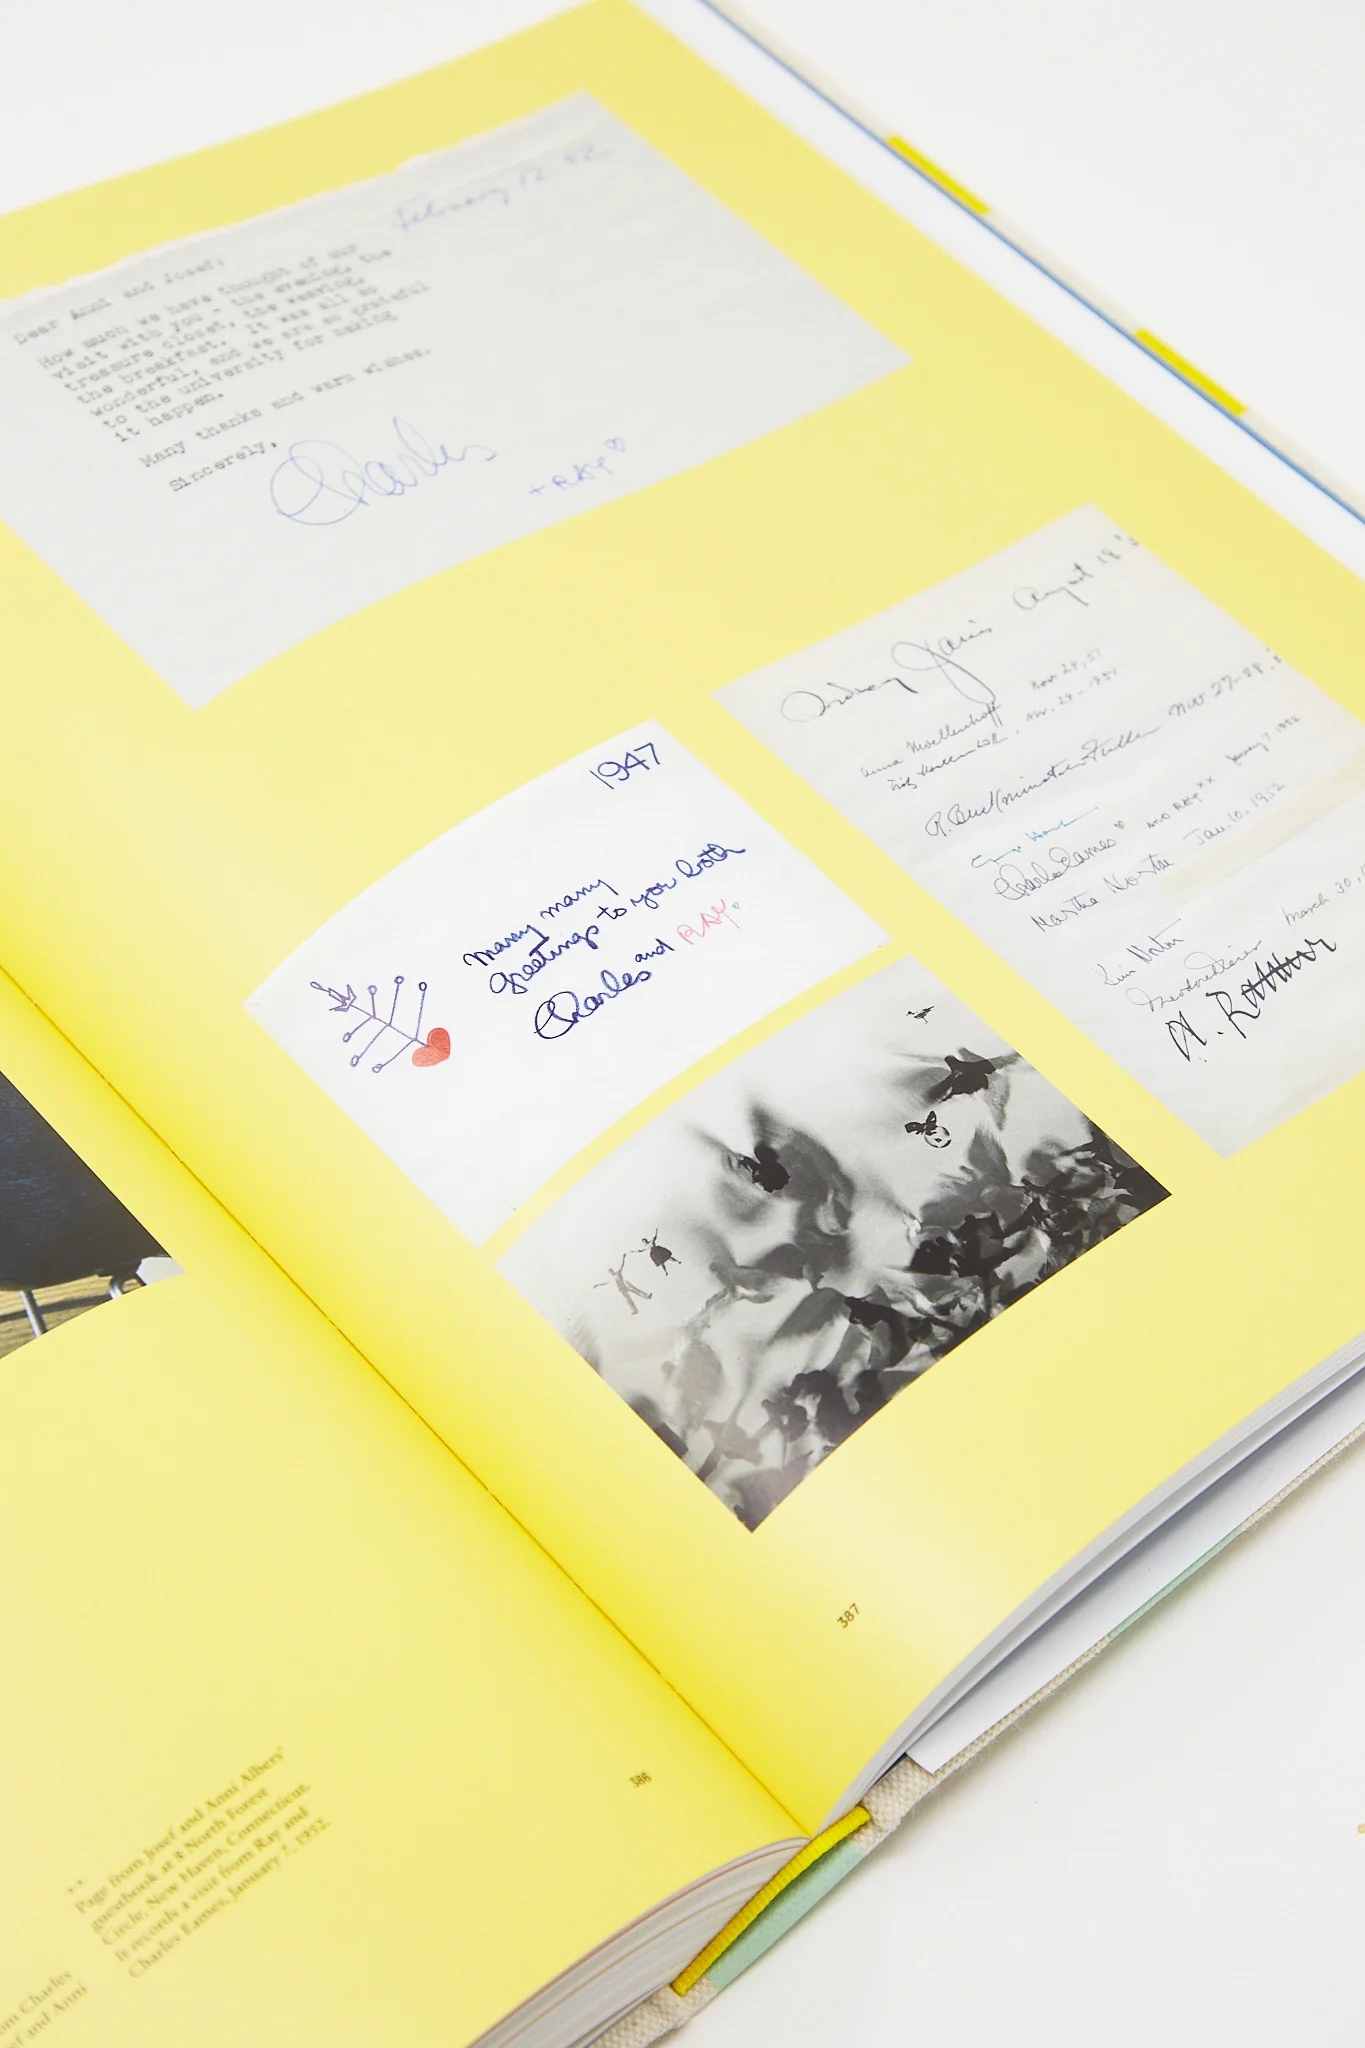 February 12 52
Dear Anni and Josef:
How much we have thought of our
visit with you - the evening, the
treasure closet, the weaving,
the breakfast. It was all so
wonderful, and we are so grateful
to the university for making
it happen.
Many thanks and warm wishes.
Sincerely,
Charles
+ RAY
August 18
Janis
Anna Moellenhoff Nov 24, 51
Nov. 24 - 1951
R. Buckminster Fuller Nov 27-28
Charles Eames AND RAY xx January 7 1952
Jan. 10. 1952
March 30
1947
many many
greetings to you both
Charles and RAY
387
386
Page from Josef and Anni Albers'
guestbook at 8 North Forest
Circle, New Haven, Connecticut.
It records a visit from Ray and
Charles Eames, January 7, 1952.
Charles
and Anni